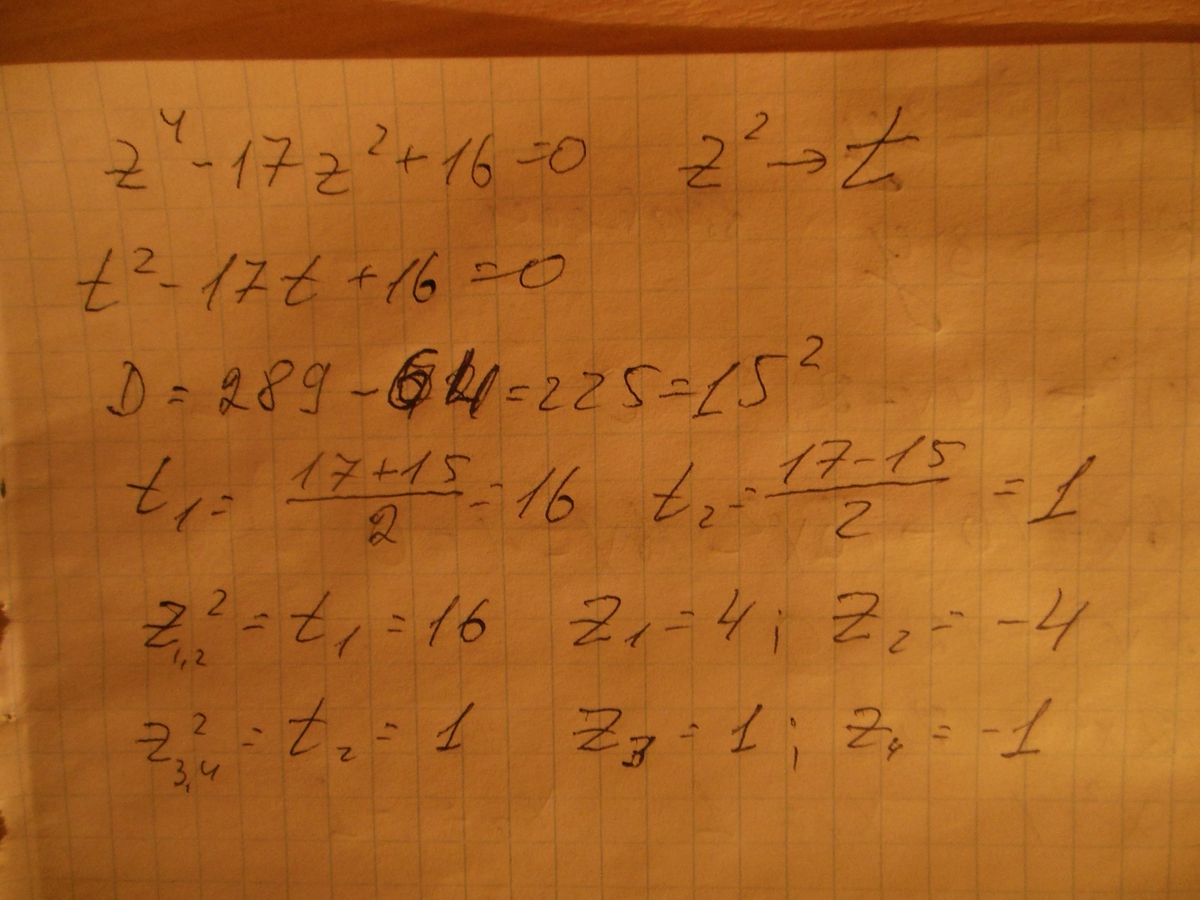 z⁴ - 17z² + 16 = 0 z² → t
t² - 17t + 16 = 0
D = 289 - 64 = 225 = 15²
t₁ = (17+15)/2 = 16 t₂ = (17-15)/2 = 1
z₁,₂² = t₁ = 16 z₁ = 4; z₂ = -4
z₃,₄² = t₂ = 1 z₃ = 1; z₄ = -1